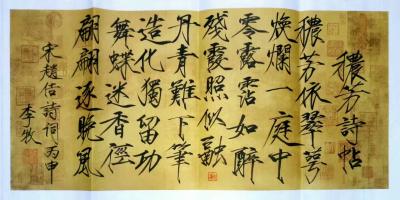 穠芳詩帖
穠芳依翠萼
煥爛一庭中
零露霑如醉
殘霞照似融
丹青難下筆
造化獨留功
舞蝶迷香徑
翩翩逐晚風
宋趙佶詩詞丙申
李牧